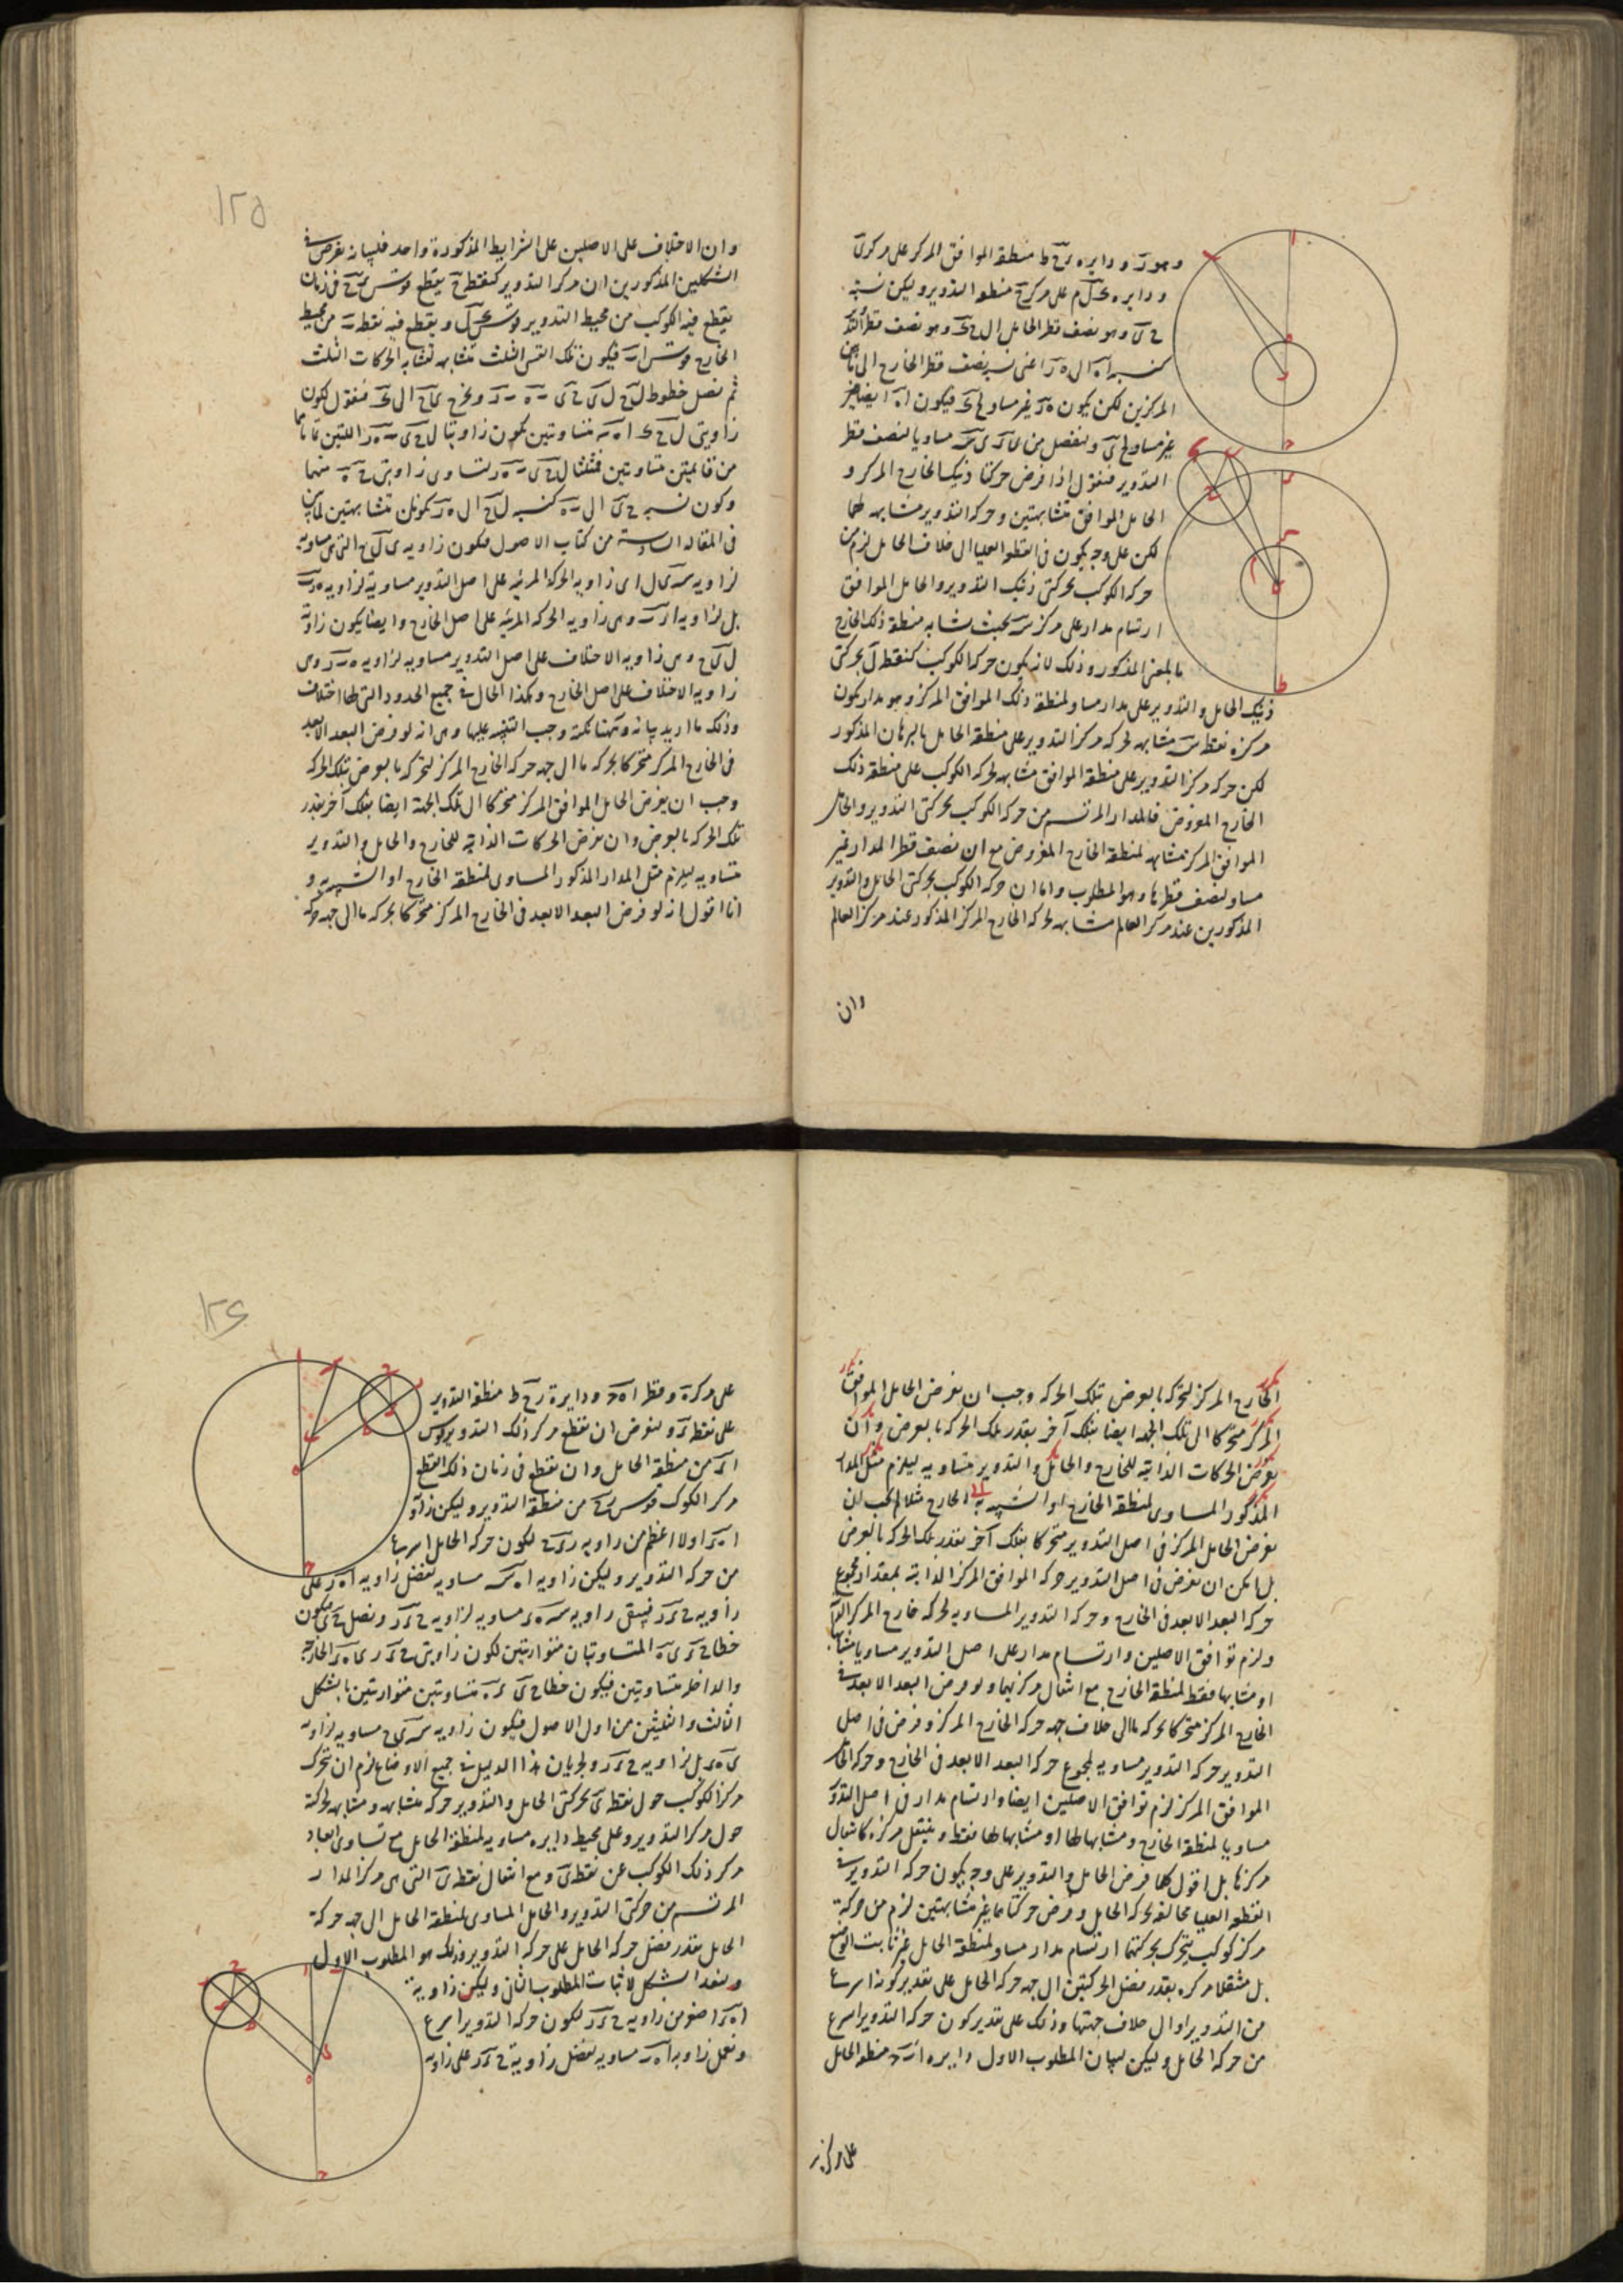 وهو ر ودايره ى ح ط منطقة الموافق المركز على مركز ى
ودايره ك ل م على مركز ح منطقة التدوير وليكن نسبة
ح ى وهو نصف قطر الحامل الى ح ك وهو نصف قطر التدوير
كنسبة ا ه الى ه ر اعنى نسبة نصف قطر الخارج الى ما بين
المركزين لكن يكون ه ر غير مساو لح ك فيكون ا ه ايضا
غير مساو لح ى ولنفصل من ى س مساويا لنصف قطر
التدوير فنقول اذا فرض حركتا ذينك الخارج المركز و
الحامل الموافق متشابهتين وحركة التدوير مشابهة لهما
لكن على وجه يكون فى القطعة العليا الى خلاف الحامل لزم من
حركة الكوكب بحركتى ذينك التدوير والحامل الموافق
ارتسام مدار على مركز س بحيث يشابه منطقة ذلك الخارج
بالمعنى المذكور وذلك لانه يكون حركة الكوكب كنقطة ل بحركتى
ذينك الحامل والتدوير على مدار مساو لمنطقة ذلك الموافق المركز وهو مدار يكون
مركزه نقطة س مشابهة لحركة مركز التدوير على منطقة الحامل بالبرهان المذكور
لكن حركة مركز التدوير على منطقة الموافق مشابهة لحركة الكوكب على منطقة ذلك
الخارج المفروض فالمدار المرتسم من حركة الكوكب بحركتى التدوير والحامل
الموافق المركز مشابه لمنطقة الخارج المفروض مع ان نصف قطر المدار غير
مساو لنصف قطرها وهو المطلوب واما ان حركة الكوكب بحركتى الحامل والتدوير
المذكورين عند مركز العالم مشابهة لحركة الخارج المركز المذكور عند مركز العالم
وان
١٢٥
وان الاختلاف على الاصلين على الشرايط المذكورة واحد فلبيانه نفرض فى
الشكلين المذكورين ان مركز التدوير كنقطة ح يقطع قوس ى ح فى زمان
يقطع فيه الكوكب من محيط التدوير قوس ك ل ويقطع فيه نقطة ب من محيط
الخارج قوس ا ب فيكون تلك القسى الثلث متشابهة لتشابه الحركات الثلث
ثم نصل خطوط ل ح ل ى ح ى ب ه ب ر ونخرج ى ح الى ك فنقول لكون
زاويتى ل ح ك ا ه ب متساويتين يكون زاويتا ل ح ى ب ه ر اللتين تمامهما
من قايمتين متساويتين فمثلثا ل ح ى ب ه ر لتساوى زاويتى ح ه منهما
وكون نسبة ح ى الى ب ه كنسبة ل ح الى ه ر يكونان متشابهتين لما بين
فى المقالة السادسة من كتاب الاصول فيكون زاوية ى ل ح التى هى مساوية
لزاوية س ى ل اى زاوية الحركة المرئية على اصل التدوير مساوية لزاوية ه ر ب
بل لزاوية ا ر ب وهى زاوية الحركة المرئية على اصل الخارج وايضا يكون زاوية
ل ى ح وهى زاوية الاختلاف على اصل التدوير مساوية لزاوية ه ب ر وهى
زاوية الاختلاف على اصل الخارج وهكذا الحال فى جميع الحدود التى لها اختلاف
وذلك ما اريد بيانه وههنا نكتة وجب التنبيه عليها وهى انه لو فرض البعد الابعد
فى الخارج المركز متحركا بحركة ما الى جهة حركة الخارج المركز لتحركه بالعرض بتلك الحركة
وجب ان يفرض الحامل الموافق المركز متحركا الى تلك الجهة ايضا بفلك آخر بقدر
تلك الحركة بالعرض وان يفرض الحركات الذاتية للخارج والحامل والتدوير
متساوية ليلزم مثل المدار المذكور المساوى لمنطقة الخارج او الشبيه به و
انا اقول انه لو فرض البعد الابعد فى الخارج المركز متحركا بحركة ما الى جهة حركة
الخارج المركز لتحركه بالعرض بتلك الحركة وجب ان يفرض الحامل الموافق
المركز متحركا الى تلك الجهة ايضا بفلك آخر بقدر تلك الحركة بالعرض وان
يفرض الحركات الذاتية للخارج والحامل والتدوير متساوية ليلزم مثل المدار
المذكور المساوى لمنطقة الخارج او الشبيه به الخارج مثلا لم يجب ان
يفرض الحامل المركز فى اصل التدوير متحركا بفلك آخر بقدر تلك الحركة بالعرض
بل امكن ان يفرض فى اصل التدوير حركة الموافق المركز الذاتية بمقدار مجموع
حركة البعد الابعد فى الخارج وحركة التدوير المساوية لحركة خارج المركز
ولزم توافق الاصلين وارتسام مدار على اصل التدوير مساويا مشابها
او مشابها فقط لمنطقة الخارج مع انتقال مركزيهما ولو فرض البعد الابعد فى
الخارج المركز متحركا بحركة ما الى خلاف جهة حركة الخارج المركز وفرض فى اصل
التدوير حركة التدوير مساوية لمجموع حركة البعد الابعد فى الخارج وحركة الحامل
الموافق المركز لزم توافق الاصلين ايضا وارتسام مدار فى اصل التدوير
مساويا لمنطقة الخارج ومشابها لها او مشابها لها فقط وينتقل مركزه كانتقال
مركزها بل اقول كلما فرض الحامل والتدوير على وجه يكون حركة التدوير فى
القطعة العليا مخالفة لحركة الحامل وفرض حركتاهما غير متشابهتين لزم من حركة
مركز كوكب يتحرك بحركتهما ارتسام مدار مساو لمنطقة الحامل غير ثابت الوضع
بل منتقلا مركزه بقدر فضل الحركتين الى جهة حركة الحامل على تقدير كونها اسرع
من التدوير او الى خلاف جهتها وذلك على تقدير كون حركة التدوير اسرع
من حركة الحامل وليكن لبيان المطلوب الاول دايره ا ر ح منطقة الحامل
على مركز
١٢٦
على مركز ه وقطر ا ه ح ودايرة ر ح ط منطقة التدوير
على نقطة ر ولنفرض ان نقطع مركز ذلك التدوير قوس
ا ر من منطقة الحامل وان نقطع فى زمان ذلك القطع
مركز الكوكب قوس ح من منطقة التدوير وليكن زاوية
ا ه ر اولا اعظم من زاوية ح ر لكون حركة الحامل اسرع
من حركة التدوير وليكن زاوية ا ه س مساوية لفضل زاوية ا ه ر على
زاوية ح ر فيبقى زاوية س ه ر مساوية لزاوية ح ر ونصل ح ى فيكون
خطا ح ر ى ه المتساويتان متوازيتين لكون زاويتى الخارجة
والداخلة متساويتين فيكون خطا ح ى ر ه متساويتين متوازيتين بالشكل
الثالث والثلثين من اول الاصول فيكون زاوية س ى ح مساوية لزاوية
ى ه ر بل لزاوية ح ر ولجريان هذا الدليل فى جميع الاوضاع لزم ان يتحرك
مركز الكوكب حول نقطة ى بحركتى الحامل والتدوير حركة متشابهة ومشابهة لحركته
حول مركز التدوير وعلى محيط دايرة مساوية لمنطقة الحامل مع تساوى ابعاد
مركز ذلك الكوكب عن نقطة ى ومع انتقال نقطة ى التى هى مركز المدار
المرتسم من حركتى التدوير والحامل المساوى لمنطقة الحامل الى جهة حركة
الحامل بقدر فضل حركة الحامل على حركة التدوير وذلك هو المطلوب الاول
ولنعد الشكل لاثبات المطلوب الثانى وليكن زاوية
ا ه ر اصغر من زاوية ح ر لكون حركة التدوير اسرع
ونعمل زاوية ا ه س مساوية لفضل زاوية ح ر على زاوية